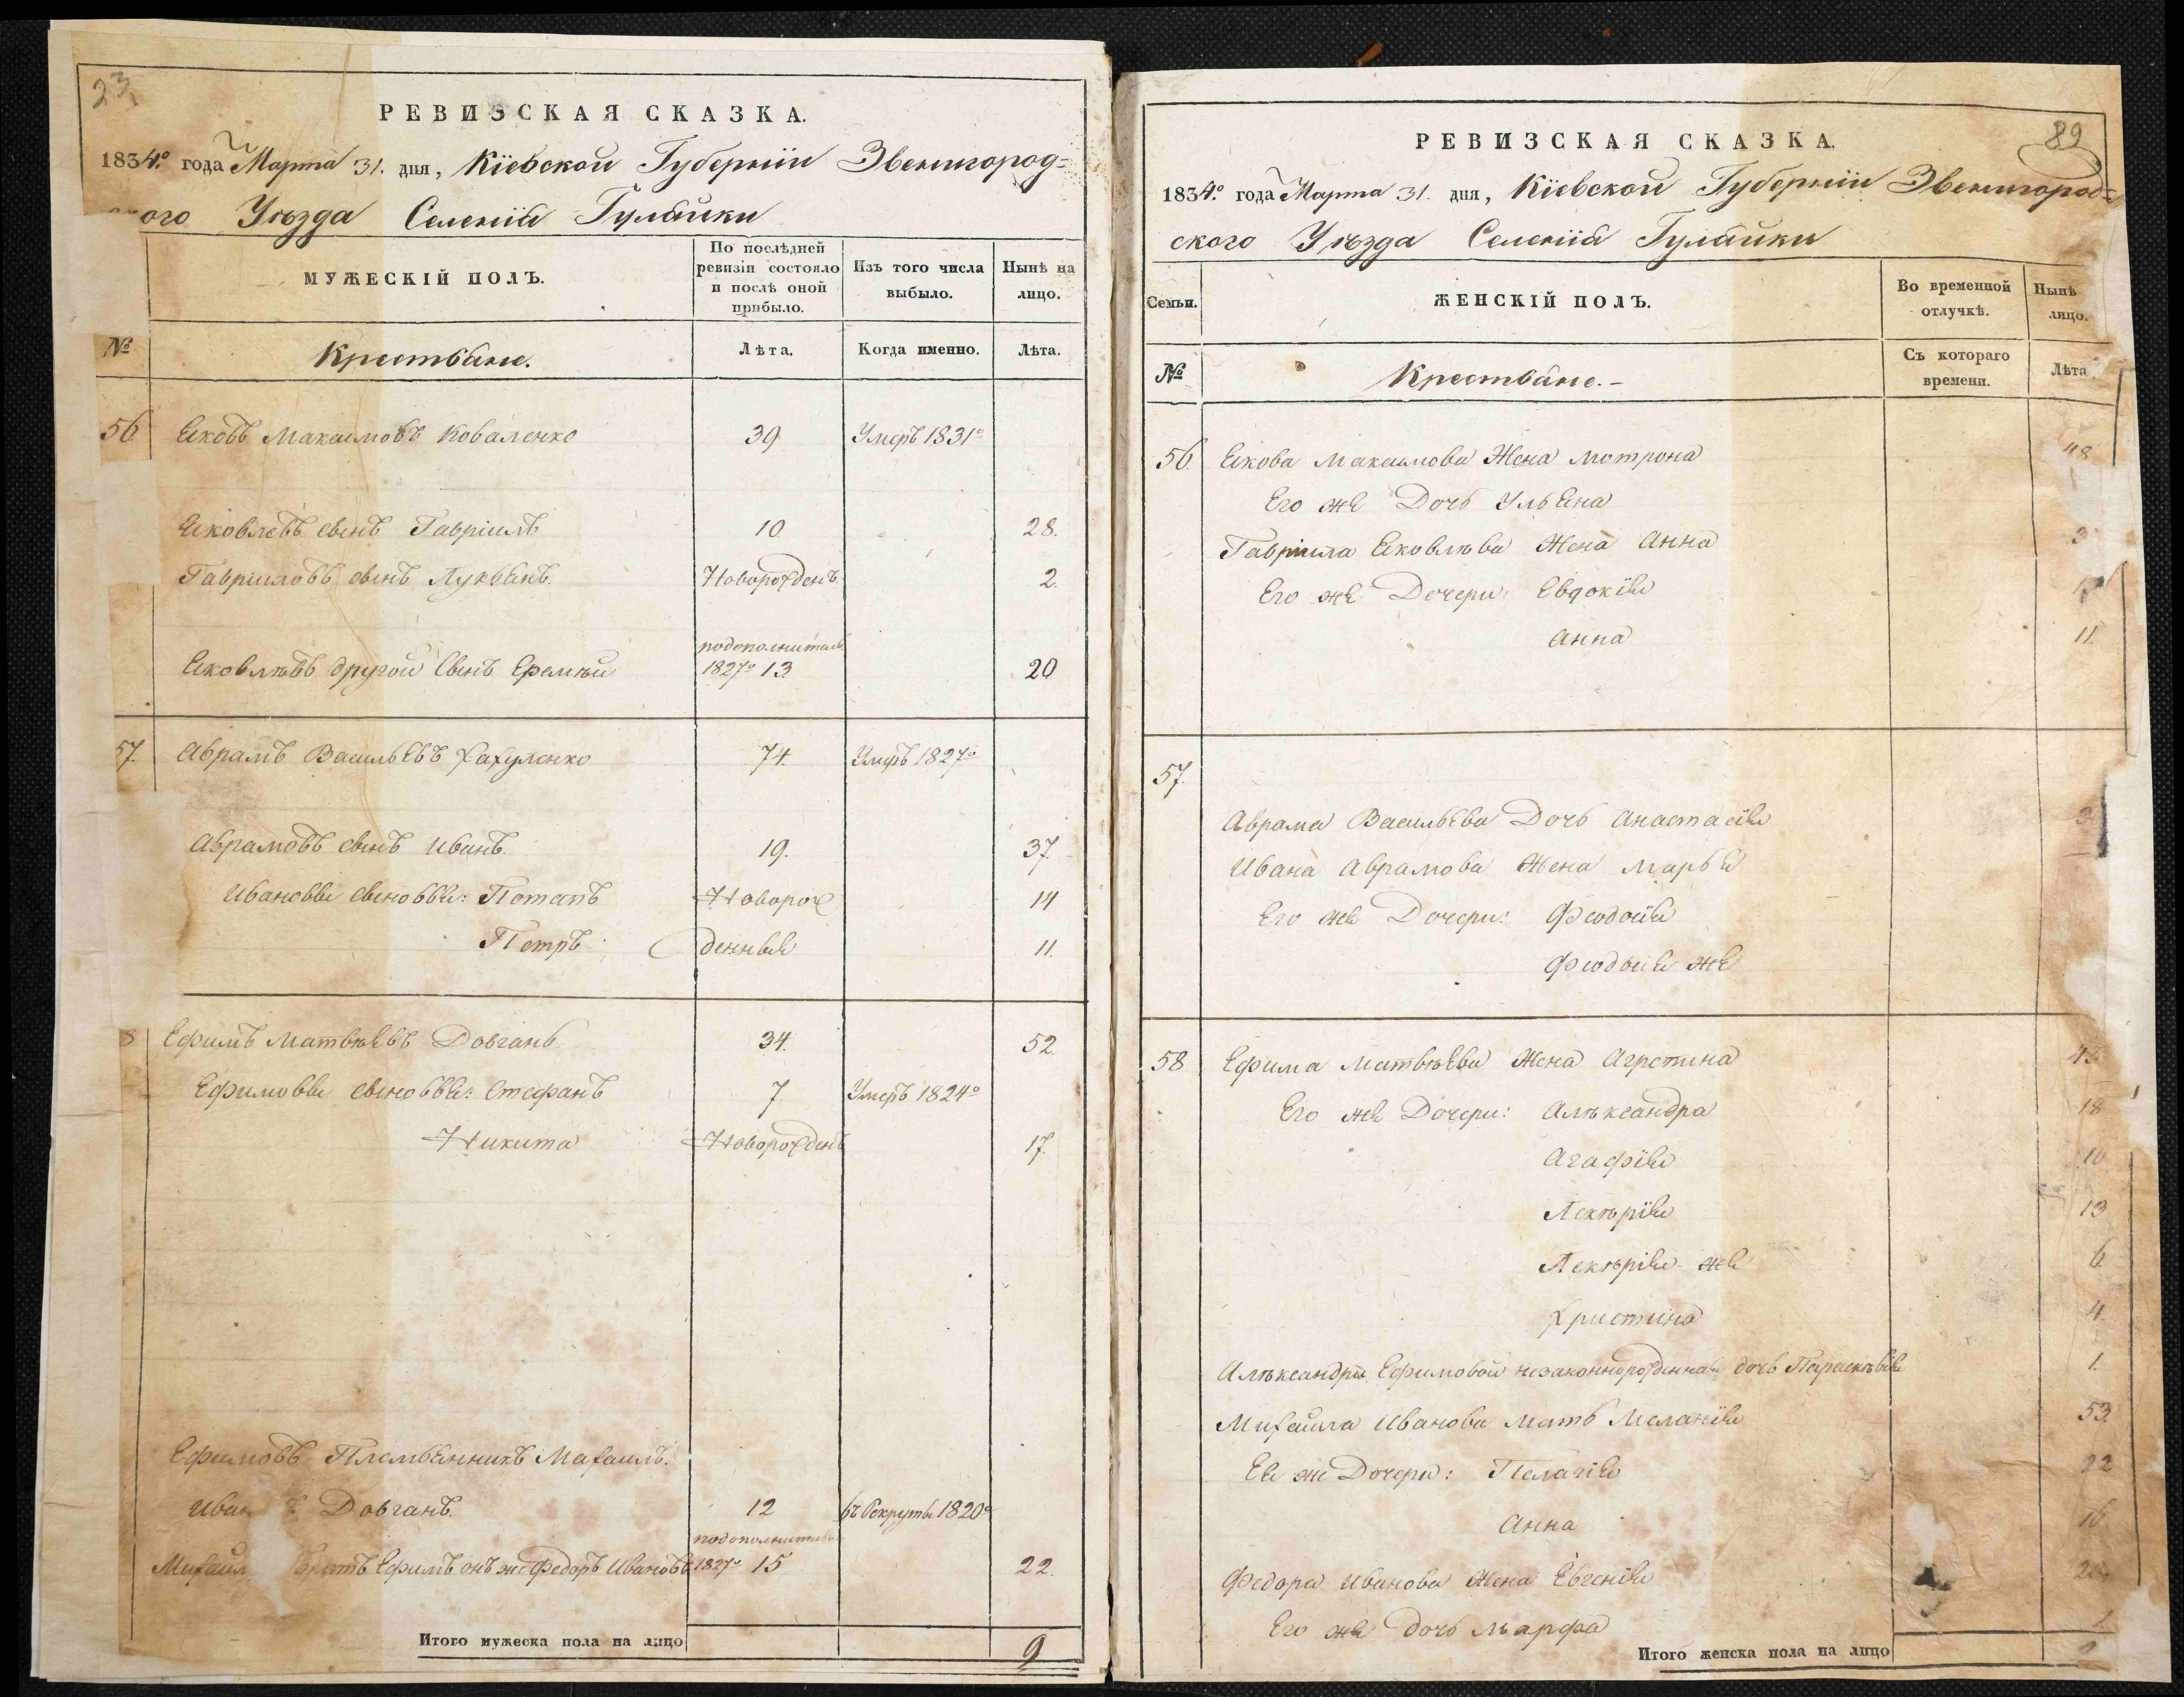 23
РЕВИЗСКАЯ СКАЗКА.
1834.º года Марта 31. дня, Кіевской Губерніи Звенигород=
ского Уѣзда Селенія Гулайки
МУЖЕСКІЙ ПОЛЪ.
По послѣдней ревизіи состояло и послѣ оной прибыло.
Изъ того числа выбыло.
Нынѣ на лицо.
№ Крестьяне. Лѣта. Когда именно. Лѣта.
56 Яковъ Максимовъ Коваленко 39 Умеръ 1831º
Яковлевъ сынъ Гавріилъ 10 28.
Гавріиловъ сынъ Лукьянъ. Новорожденъ. 2.
подополнител
Яковлѣвъ другой Сынъ Еремѣй 1827º 13 20
57. Абрамъ Васильевъ Хахуленко 74. Умеръ 1827º
Абрамовъ сынъ Иванъ. 19. 37.
Ивановы сыновья: Потапъ Новорож 14
Петръ денныя 11.
8 Ефимъ Матвѣевъ Довгань 34. 52.
Ефимовы сыновья: Стефанъ 7 Умеръ 1824º
Никита Новорожденъ 17.
Ефимовъ Племянникъ Михаилъ.
Иван ъ Довгань. 12 въ Рекруты 1820º
подополнител
Михаил братъ Ефимъ онъ же Федоръ Ивановъ 1827º 15 22.
Итого мужеска пола на лицо 9
89
РЕВИЗСКАЯ СКАЗКА.
1834.º года Марта 31. дня, Кіевской Губерніи Звенигород=
ского Уѣзда Селенія Гулайки
Семьи.
ЖЕНСКІЙ ПОЛЪ.
Во временной отлучкѣ.
Нынѣ лицо.
№ Крестьяне.- Съ котораго времени. Лѣта.
56. Якова Максимова Жена Мотрона 48
Его же Дочь Ульяна
Гавріила Яковлѣва Жена Анна 3
Его же Дочери: Евдокія
Анна 11.
57.
Абрама Васильева Дочь Анастасія 3
Ивана Абрамова Жена Марья
Его же Дочери: Феодосія
Феодосія же
58 Ефима Матвѣева Жена Агрепина 45
Его же Дочери: Алѣксандра 18
Агафія 16
Лекѣрія 13
Лекѣрія же 6
Христина 4
Алѣксандры Ефимовой незаконнорожденная дочь Параскѣвія 1.
Михайла Иванова Мать Меланія 53.
Ея же Дочери: Пелагія 22
Анна 16
Федора Иванова Жена Евгенія 20
Его же дочь Марфа 1.
Итого женска пола на лицо